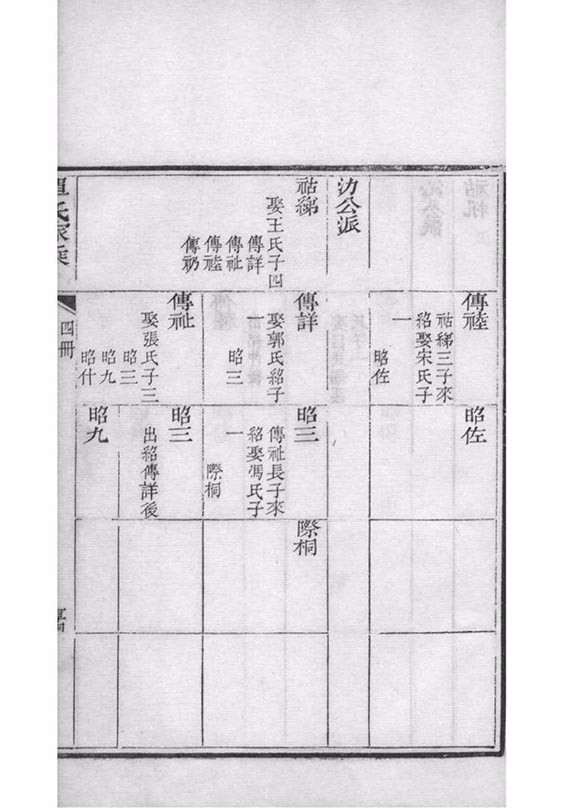 傳
祜綈三子來
紹娶宋氏子
一
昭佐
昭佐
公派
祜綈
娶王氏子四
傳詳
傳祉
傳
傳礽
傳詳
娶郭氏紹子
一
昭三
昭三
傳祉長子來
紹娶馮氏子
一
際桐
際桐
傳祉
娶張氏子三
昭三
昭九
昭什
昭三
出紹傳詳後
昭九
氏家乘
四冊